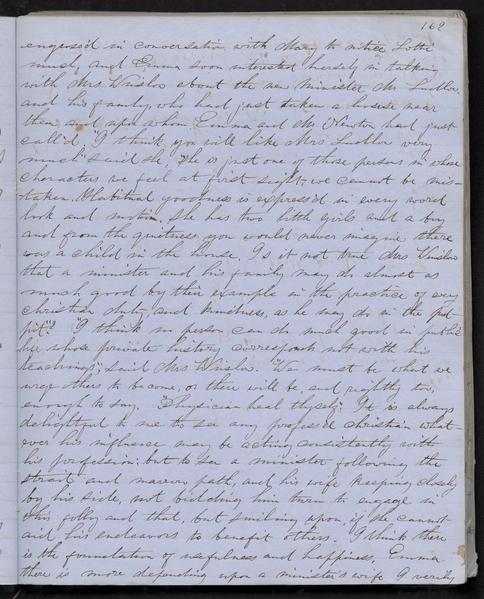 169
engross'd in conversation with Mary to notice Lotti
much, and Emma soon interested herself in talking
with Mrs Winslow about the new minister Mr Ludlow
and his family, who had just taken a house near
them and upon whom Emma and Mr had just
call'd, "I think you will like Mrs Ludlow very
much" said she, "She is just one of those persons in whose
characters we feel at first sight, we cannot be mis-
taken. Habitual goodness is express'd in every word
look and motion. She has two little girls and a boy
and from the quietness you would never imagine there
was a child in the house. Is it not true Mrs Winslow
that a minister and his family may do almost as
much good by their example in the practice of every
christian duty and kindness, as he may do in the pul-
pit"? "I think no person can do much good in public
life whose private history corresponds not with his
teachings," said Mrs Winslow. "We must be what we
urge others to become, or there will be and rightly too,
enough to say. "Physician heal thyself." It is always
delightful to me to see any profess'd christian what-
ever his influence may be acting consistently with
his profession: but to see a minister following the
strait and narrow path, and his wife keeping closely
by his side, not bidding him turn to engage in
this folly and that, but smiling upon, if she cannot
aid his endeavors to benefit others. I think there
is the foundation of usefulness and happiness. Emma
there is more depending upon a minister's wife I verily